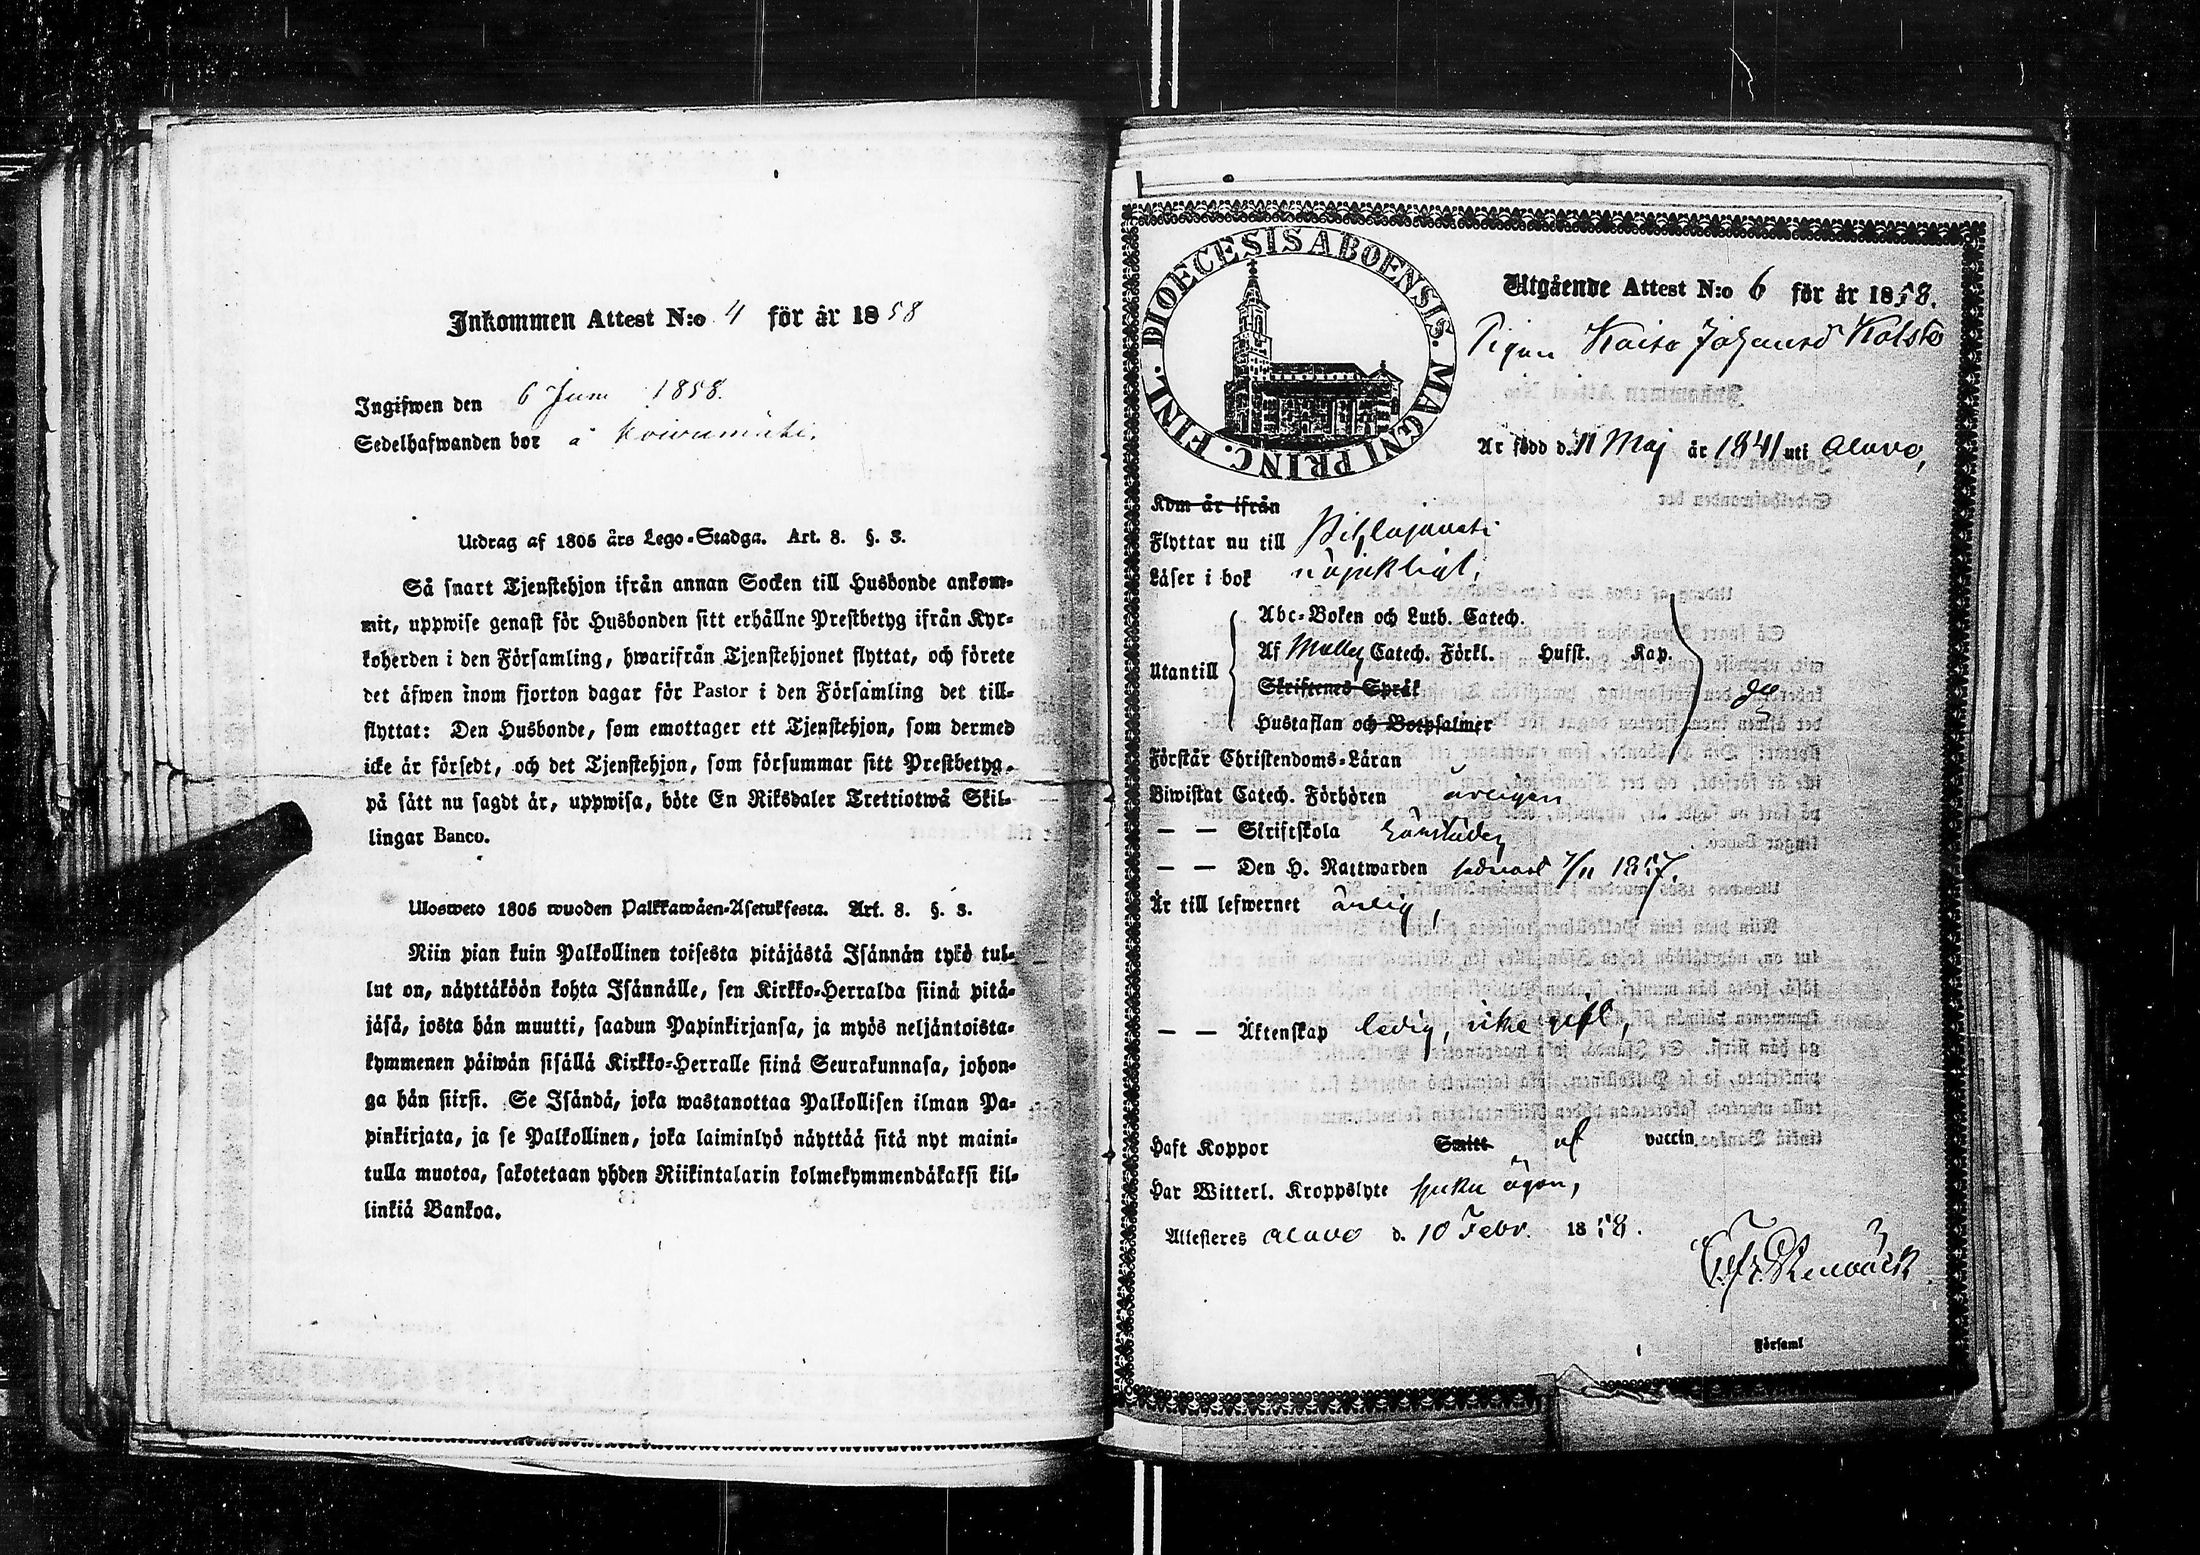 Inkommen Attest N:o 4 för år 1858
Ingifwen den 6 Juni 1858.
Sedelhafwanden bor å Koivumäki.
Utdrag af 1805 års Lego-Stadga. Art. 8. §. 3.
Så snart Tjenstehjon ifrån annan Socken till Husbonde ankom-
mit, uppwise genast för Husbonden sitt erhållne Prestbetyg ifrån Kyr-
koherden i den Församling, hwarifrån Tjenstehjonet flyttat, och förete
det äfwen inom fjorton dagar för Pastor i den Församling det till-
flyttat: Den Husbonde, som emottager ett Tjenstehjon, som dermed
icke är försedt, och det Tjenstehjon, som försummar sitt Prestbetyg,
på sätt nu sagdt är, uppwisa, böte En Riksdaler Trettiotwå Skil-
lingar Banco.
Ulosweto 1805 wuoden Palkkawäen-Asetuksesta. Art. 8. §. 3.
Niin pian kuin Palkollinen toisesta pitäjästä Isännän tykö tul-
lut on, näyttäköön kohta Isännälle, sen Kirkko-Herralda siinä pitä-
jäsä, josta hän muutti, saadun Papinkirjansa, ja myös neljäntoista-
kymmenen päiwän sisällä Kirkko-Herralle siinä Seurakunnasa, johon-
ga hän siirsi. Se Isändä, joka wastanottaa Palkollisen ilman Pa-
pinkirjata, ja se Palkollinen, joka laiminlyö näyttää sitä nyt maini-
tulla muotoa, sakotetaan yhden Riikintalarin kolmekymmendäkaksi kil-
linkiä Bankoa.
DIOECESIS ABOENSIS. MAGNI PRINC. FINL.
Utgående Attest N:o 6 för år 1858.
Pigan Kaisa Johansd Kolsto
Är född d. 11 Maj år 1841 uti Alavo,
Kom år ifrån
Flyttar nu till Pihlajavesi
Läser i bok nöjaktigt,
Abc-Boken och Luth. Catech.
Utantill Af Catech. Förkl. Husst. Kap.
Skriftenes Språk
Hustaflan och Botpsalmer
Förstår Christendoms-Läran
Biwistat Catech. Förhören årligen
— — Skriftskola
— — Den H. Nattwarden sednast 7/11 1857.
Är till lefwernet ärlig,
— — Äktenskap ledig, icke gift,
Haft Koppor Smitt af vaccin.
Har Witterl. Kroppslyte sjuka ögon,
Attesteres Alavo d. 10 Febr. 1858.
Församl